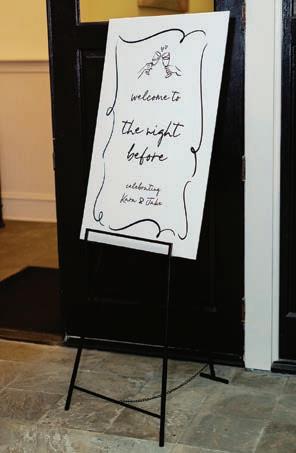 welcome to
the night
before
celebrating
& Jake